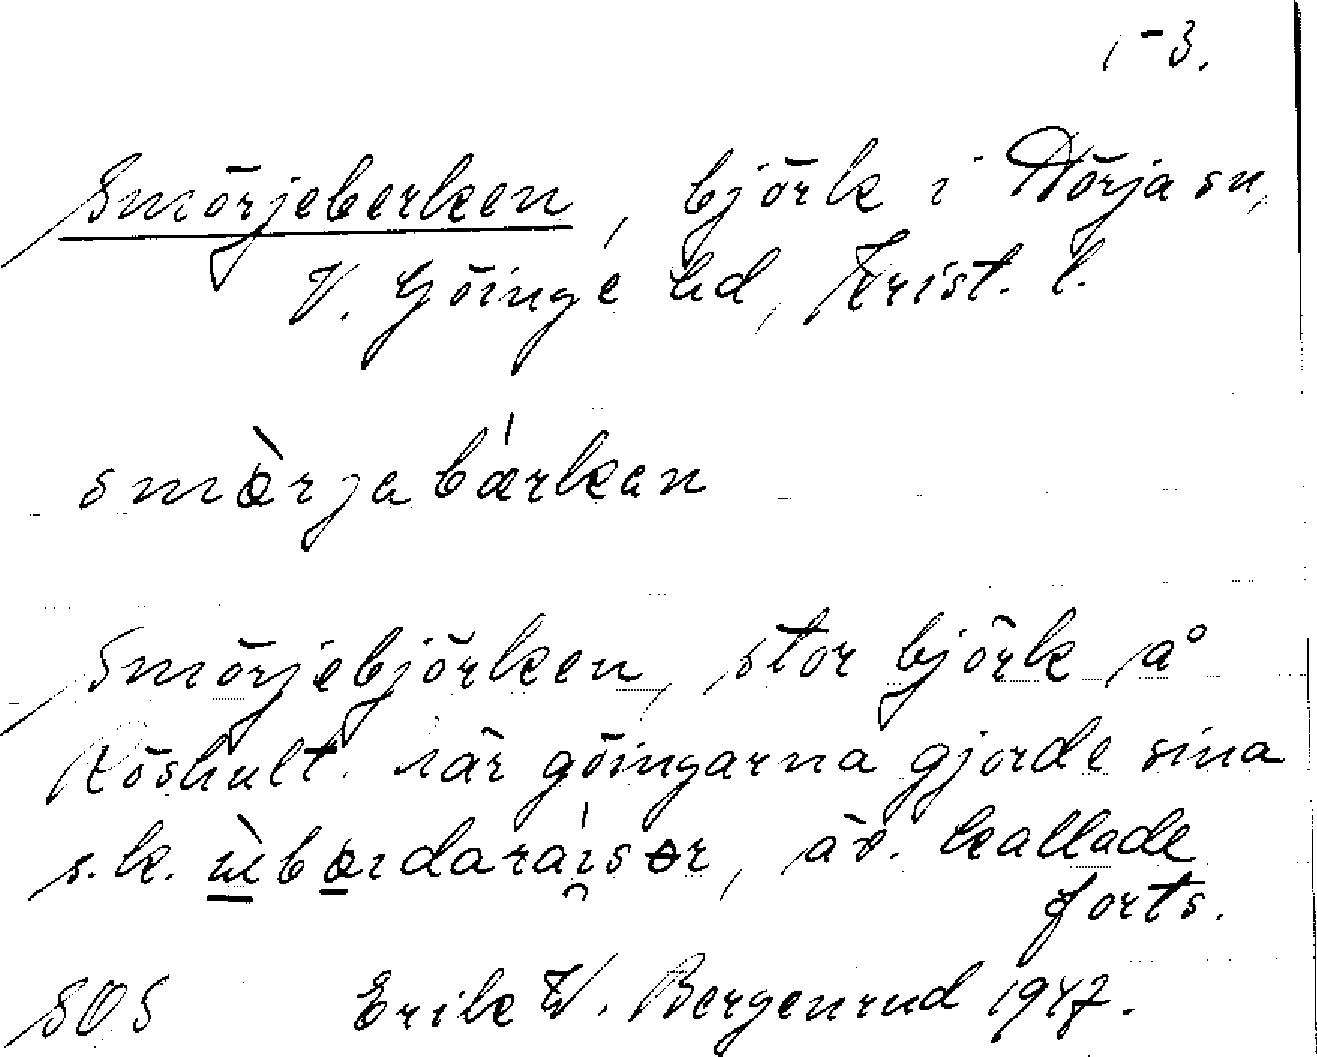 1-3.
Smörjeberken, björk i Nörja sn,
V. Göinge hd, Krist. l.
smœ̀rjabǽrkan
Smörjebjörken, stor björk å
Röshult. när göingarna gjorde sina
s.k. , äv. kallade
forts.
SOS Erik W. Bergenrud 1947.